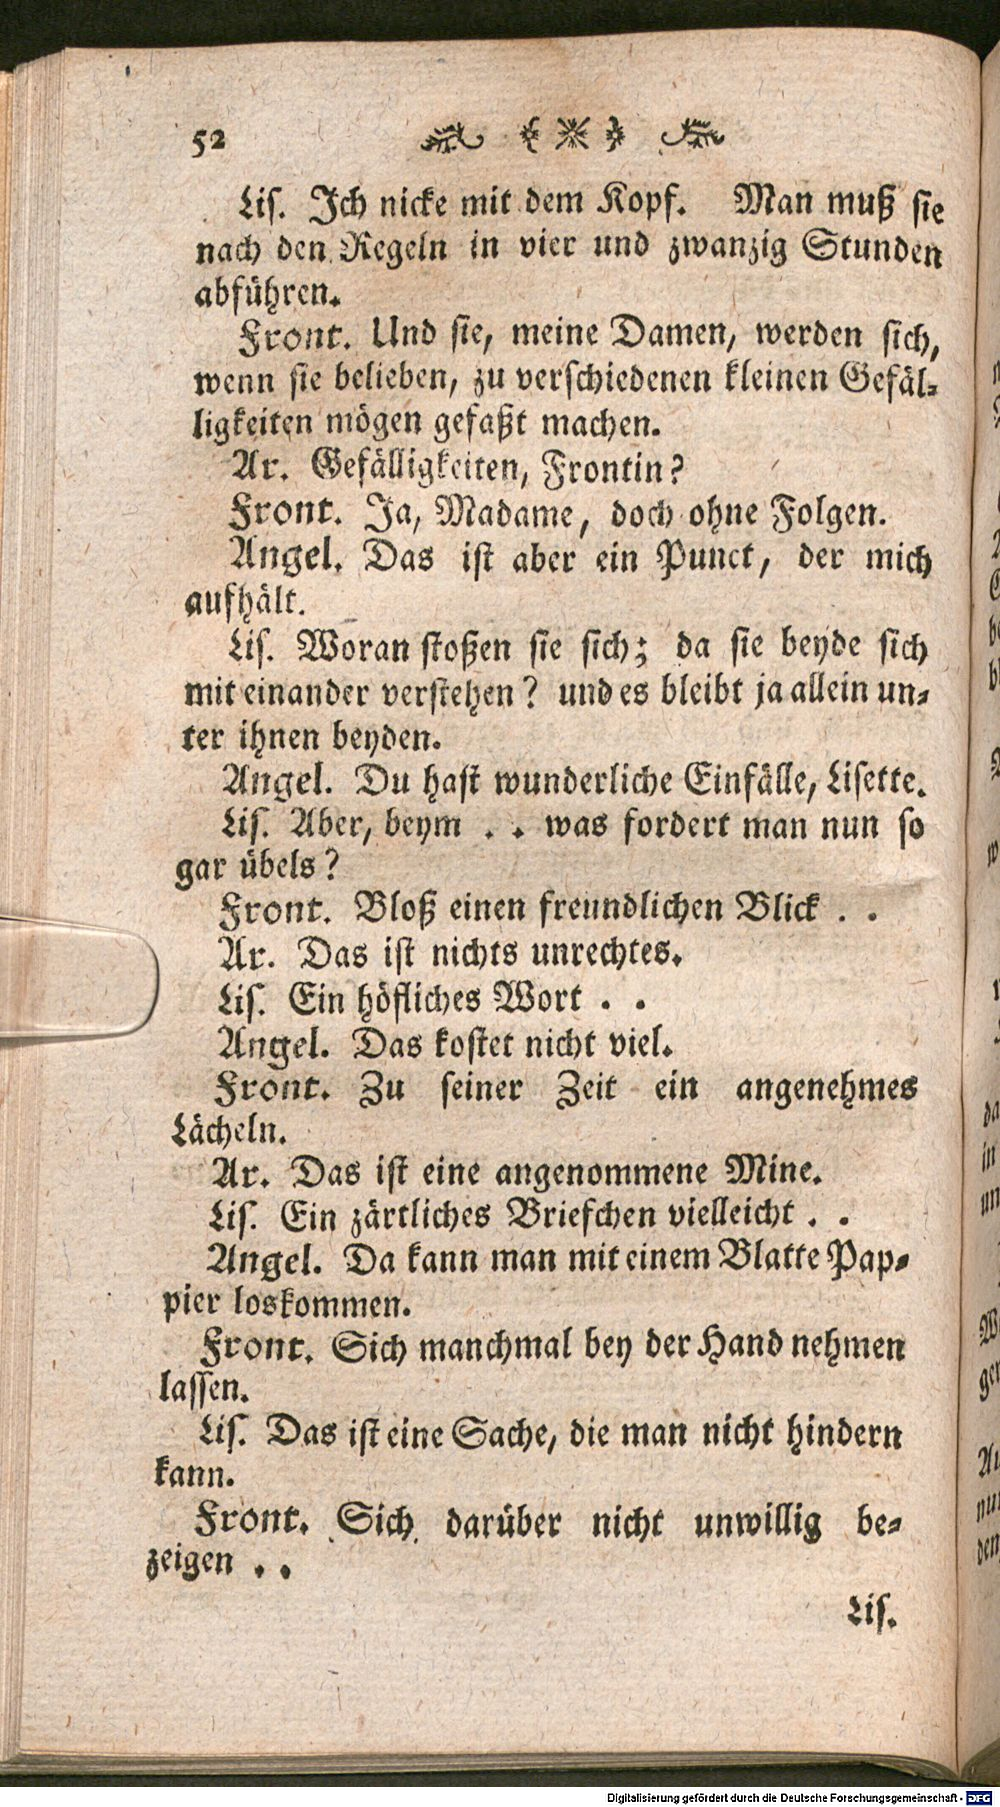 52
Lis. Ich nicke mit dem Kopf. Man muß sie
nach den Regeln in vier und zwanzig Stunden
abführen.
Front. Und sie, meine Damen, werden sich,
wenn sie belieben, zu verschiedenen kleinen Gefäl-
ligkeiten mögen gefaßt machen.
Ar. Gefälligkeiten, Frontin?
Front. Ja, Madame, doch ohne Folgen.
Angel. Das ist aber ein Punct, der mich
aufhält.
Lis. Woran stoßen sie sich; da sie beyde sich
mit einander verstehen? und es bleibt ja allein un-
ter ihnen beyden.
Angel. Du hast wunderliche Einfälle, Lisette.
Lis. Aber, beym . . was fordert man nun so
gar übels?
Front. Bloß einen freundlichen Blick . .
Ar. Das ist nichts unrechtes.
Lis. Ein höfliches Wort . .
Angel. Das kostet nicht viel.
Front. Zu seiner Zeit ein angenehmes
Lächeln.
Ar. Das ist eine angenommene Mine.
Lis. Ein zärtliches Briefchen vielleicht . .
Angel. Da kann man mit einem Blatte Pap-
pier loskommen.
Front. Sich manchmal bey der Hand nehmen
lassen.
Lis. Das ist eine Sache, die man nicht hindern
kann.
Front. Sich darüber nicht unwillig be-
zeigen . .
Lis.
Digitalisierung gefördert durch die Deutsche Forschungsgemeinschaft - DFG